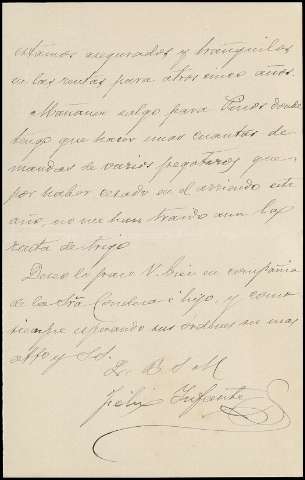 estamos asegurados y tranquilos
en las rentas para otros cinco años.
Mañana salgo para Pinos donde
tengo que hacer unas cuantas de-
mandas de varios pegoteros que
por haber cesado en el arriendo este
año, no me han traido aun la
renta de trigo.
Deseo lo pase V. bien en compañia
de la Sra. Condesa é hijo, y como
siempre esperando sus ordenes su mas
atto y S.S.
Q. B. S. M
Félix Infante